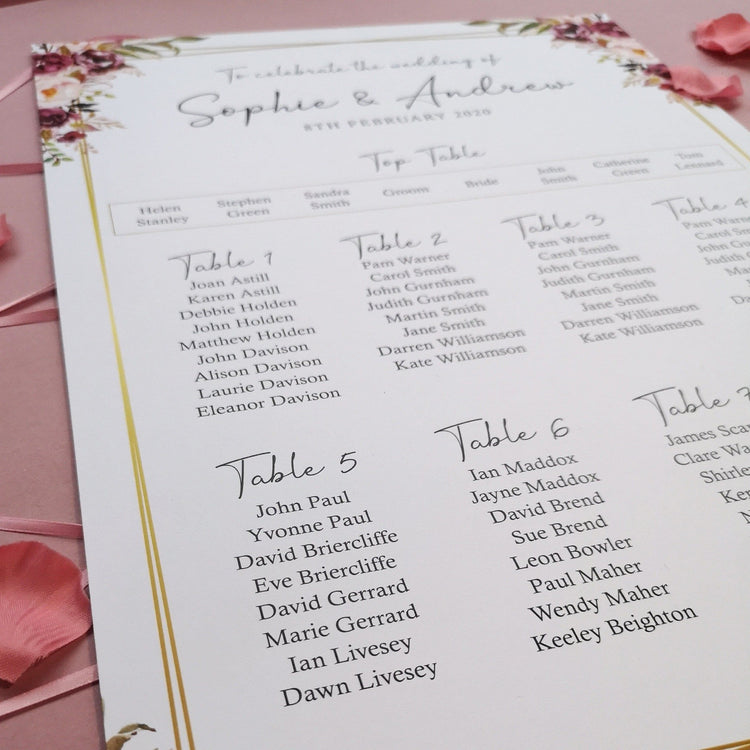 To celebrate the wedding of
Sophie & Andrew
8TH FEBRUARY 2020
Top Table
Helen Stanley
Stephen Green
Sandra Smith
Groom
Bride
John Smith
Catherine Green
Tom Leonard
Table 1
Joan Astill
Karen Astill
Debbie Holden
John Holden
Matthew Holden
John Davison
Alison Davison
Laurie Davison
Eleanor Davison
Table 2
Pam Warner
Carol Smith
John Gurnham
Judith Gurnham
Martin Smith
Jane Smith
Darren Williamson
Kate Williamson
Table 3
Pam Warner
Carol Smith
John Gurnham
Judith Gurnham
Martin Smith
Jane Smith
Darren Williamson
Kate Williamson
Table 4
Pam Warner
Carol
John
Table 5
John Paul
Yvonne Paul
David Briercliffe
Eve Briercliffe
David Gerrard
Marie Gerrard
Ian Livesey
Dawn Livesey
Table 6
Ian Maddox
Jayne Maddox
David Brend
Sue Brend
Leon Bowler
Paul Maher
Wendy Maher
Keeley Beighton
Table 7
James
Clare